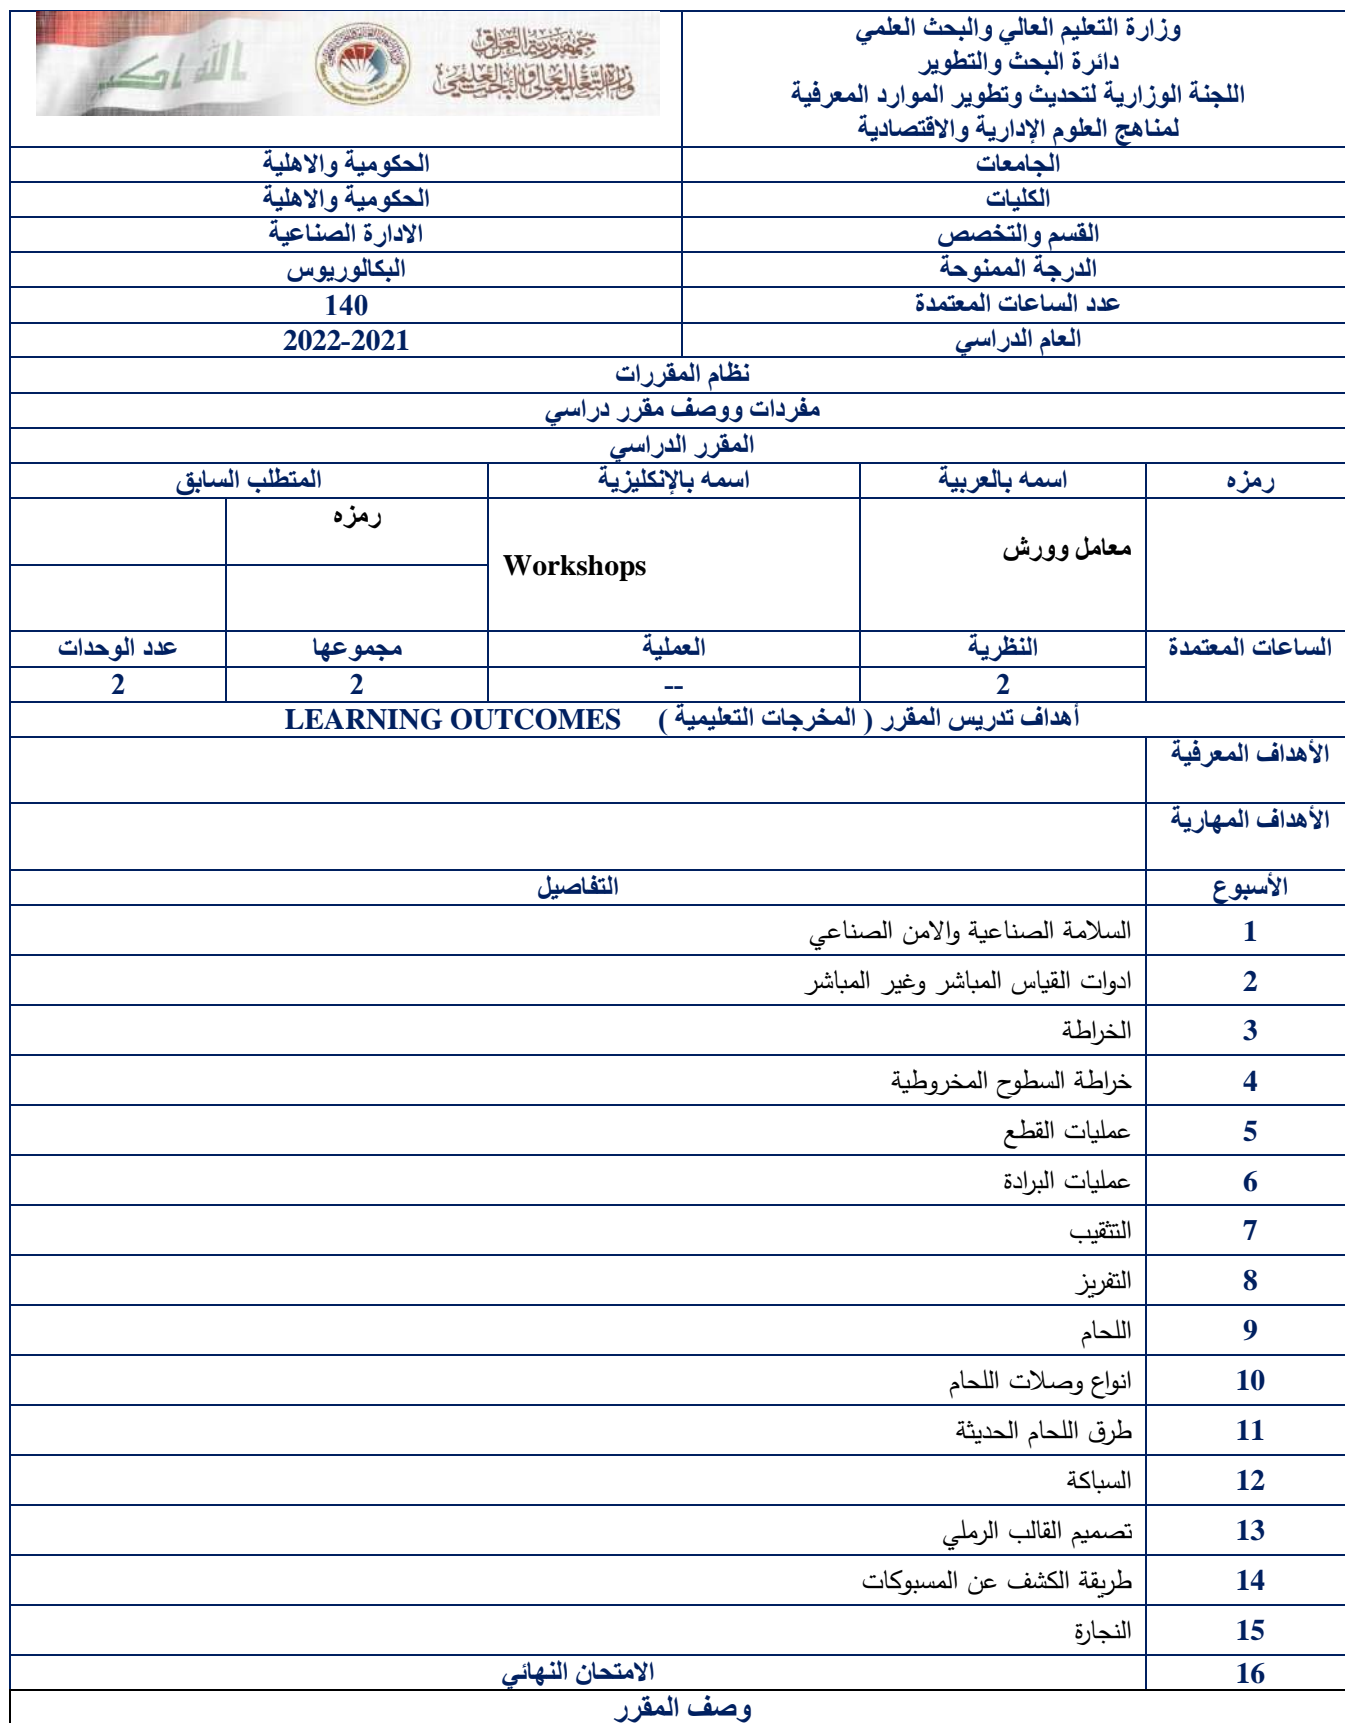 وزارة التعليم العالي والبحث العلمي
دائرة البحث والتطوير
اللجنة الوزارية لتحديث وتطوير الموارد المعرفية
لمناهج العلوم الإدارية والاقتصادية
الله اكبر
جمهورية العراق
وزارة التعليم العالي والبحث العلمي
الجامعات الحكومية والاهلية
الكليات الحكومية والاهلية
القسم والتخصص الادارة الصناعية
الدرجة الممنوحة البكالوريوس
عدد الساعات المعتمدة 140
العام الدراسي 2022-2021
نظام المقررات
مفردات ووصف مقرر دراسي
المقرر الدراسي
رمزه اسمه بالعربية اسمه بالإنكليزية المتطلب السابق
رمزه
معامل وورش Workshops
الساعات المعتمدة النظرية العملية مجموعها عدد الوحدات
2 -- 2 2
أهداف تدريس المقرر ( المخرجات التعليمية ) LEARNING OUTCOMES
الأهداف المعرفية
الأهداف المهارية
الأسبوع التفاصيل
1 السلامة الصناعية والامن الصناعي
2 ادوات القياس المباشر وغير المباشر
3 الخراطة
4 خراطة السطوح المخروطية
5 عمليات القطع
6 عمليات البرادة
7 التثقيب
8 التفريز
9 اللحام
10 انواع وصلات اللحام
11 طرق اللحام الحديثة
12 السباكة
13 تصميم القالب الرملي
14 طريقة الكشف عن المسبوكات
15 النجارة
16 الامتحان النهائي
وصف المقرر